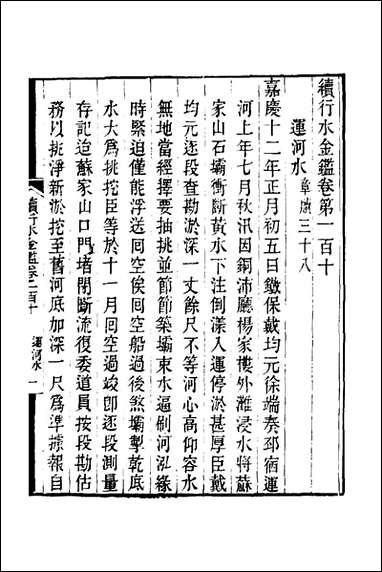 續行水金鑑卷第一百十
運河水 章牘三十八
嘉慶十二年正月初五日鐵保戴均元徐端奏邳宿運
河上年七月秋汛因銅沛廳楊家樓外灘浸水將蘇
家山石壩衝斷黃水下注倒漾入運停淤甚厚臣戴
均元逐段查勘淤深一丈餘尺不等河心高仰容水
無地當經擇要抽挑並節節築壩束水逼刷河泓緣
時緊迫僅能浮送回空俟回空船過後煞壩掣乾底
水大爲挑挖臣等於十一月回空過竣卽逐段測量
存記迨蘇家山口門堵閉斷流復委道員按段勘估
務以挑淨新淤挖至舊河底加深一尺爲準據報自
續行水金鑑卷一百十 運河水 一